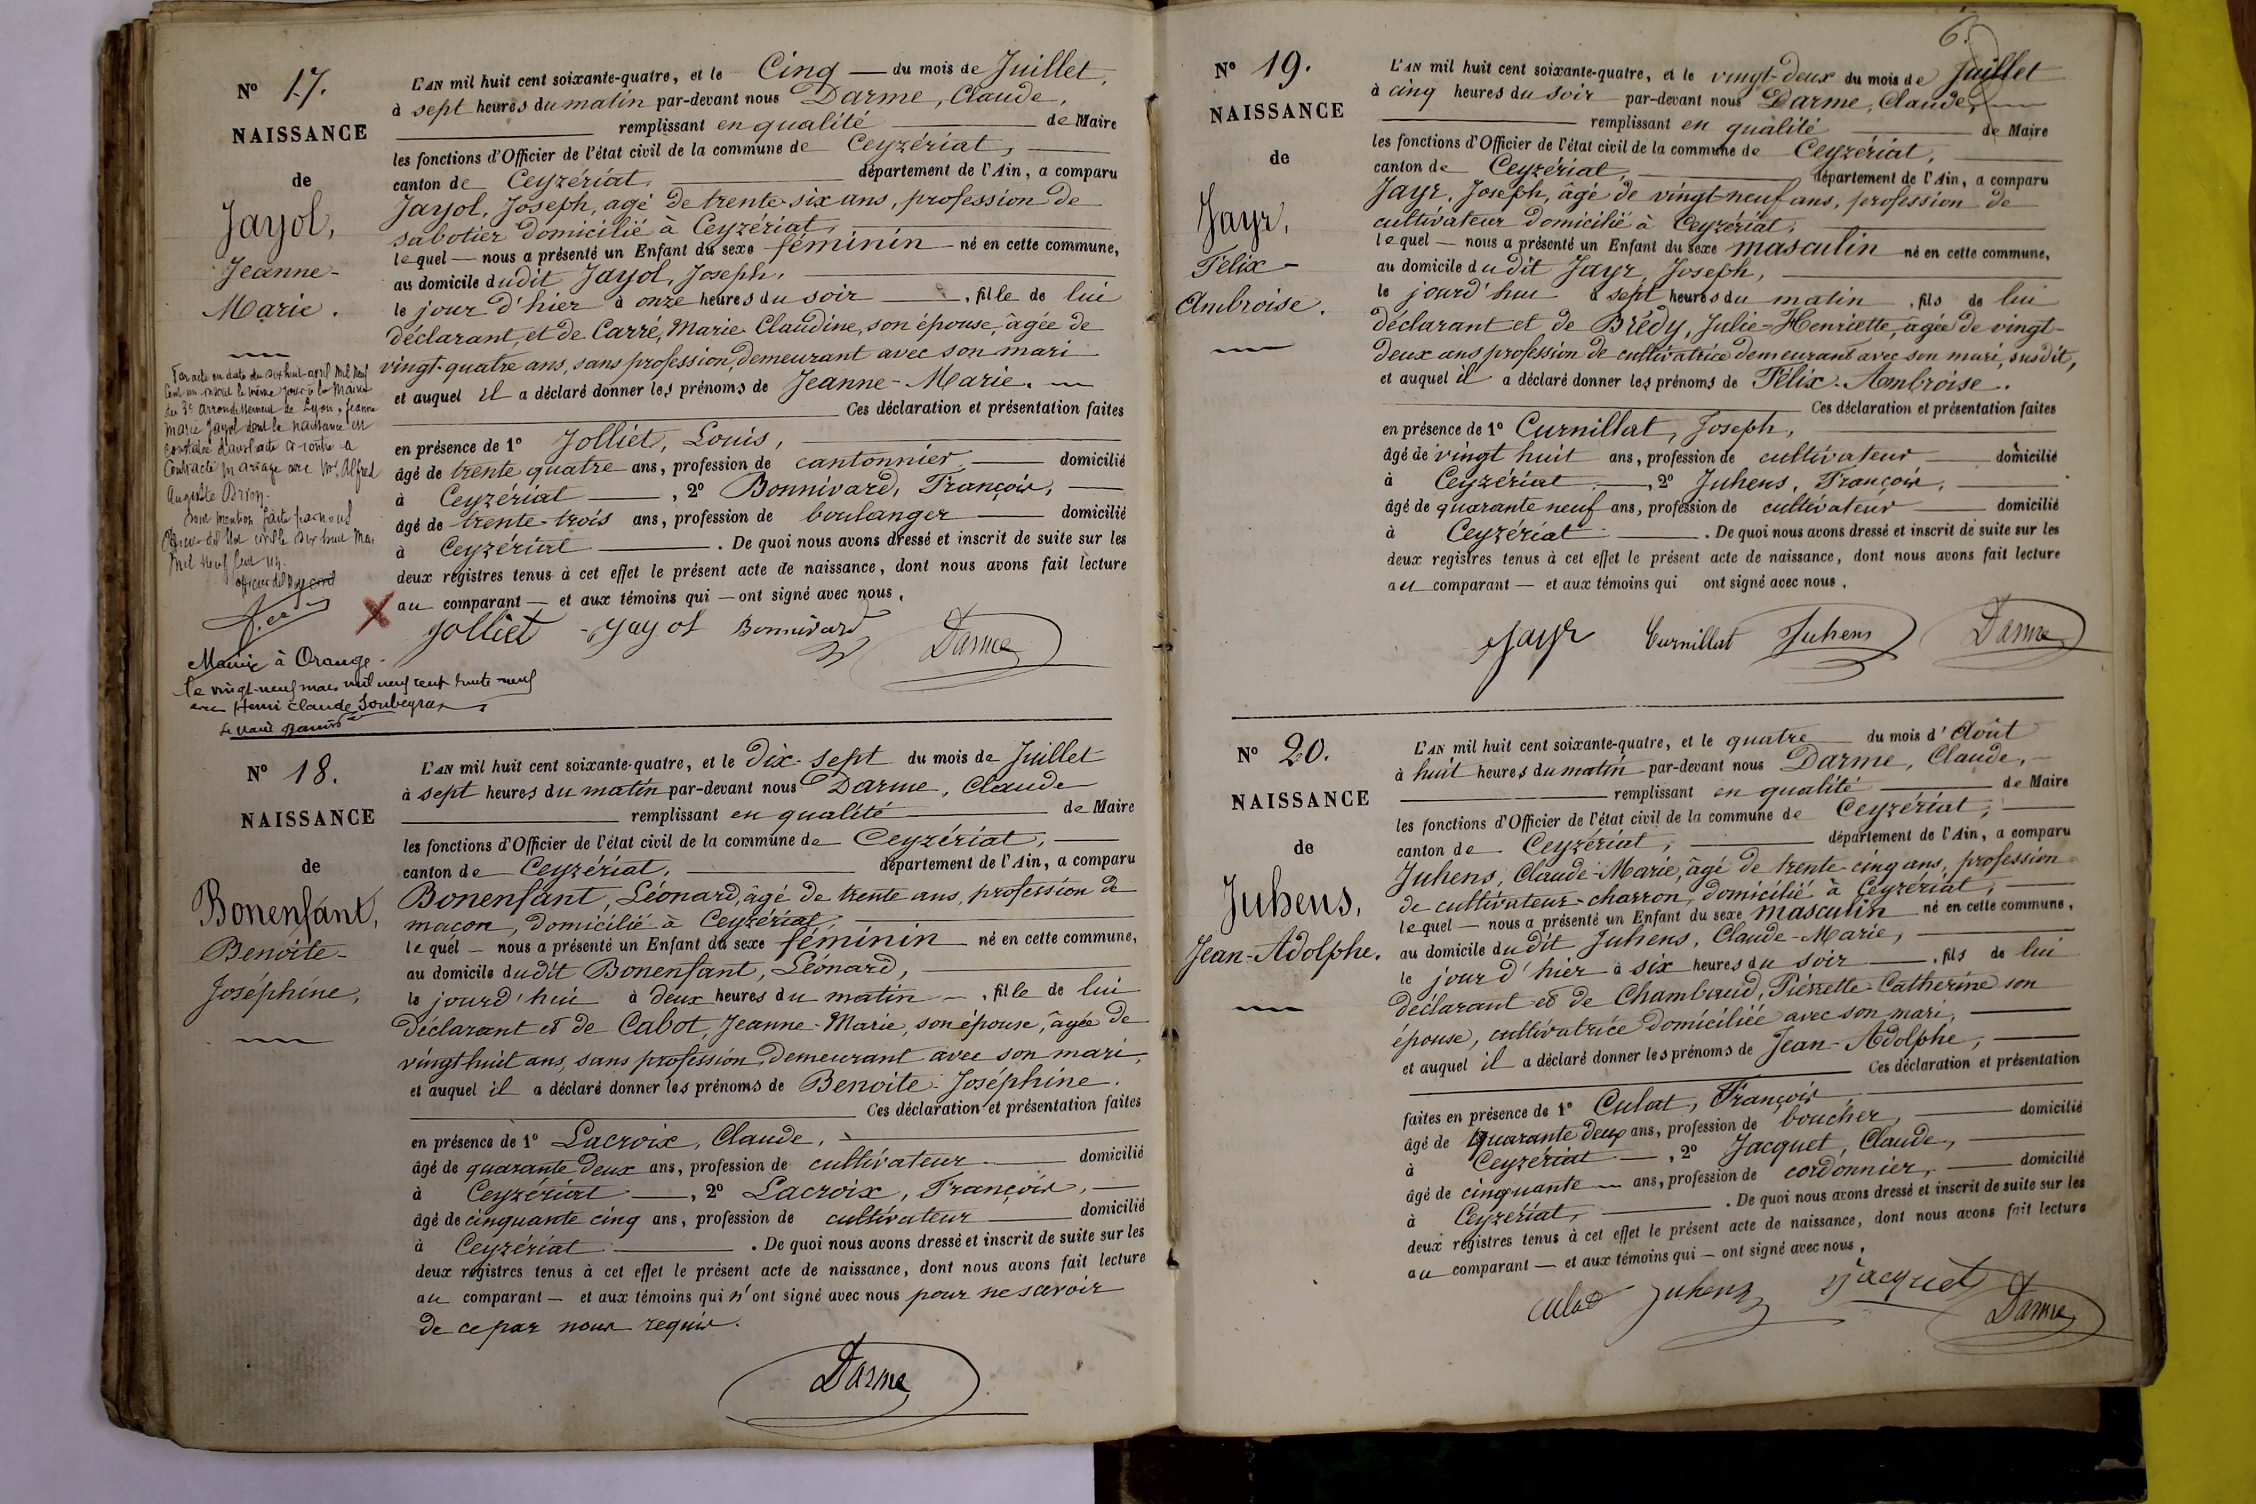 N° 17.
NAISSANCE
de
Jayol,
Jeanne-
Marie.
L'AN mil huit cent soixante-quatre, et le Cinq — du mois de Juillet,
à sept heures du matin par-devant nous Darme, Claude,
remplissant en qualité de Maire
les fonctions d'Officier de l'état civil de la commune de Ceyzériat,
canton de Ceyzériat, département de l'Ain, a comparu
Jayol, Joseph, agé de trente-six ans, profession de
sabotier domicilié à Ceyzériat,
lequel — nous a présenté un Enfant du sexe féminin né en cette commune,
au domicile dudit Jayol, Joseph,
le jour d'hier à onze heures du soir —, fille de lui
déclarant, et de Carré, Marie Claudine, son épouse, âgée de
vingt-quatre ans, sans profession, demeurant avec son mari
et auquel il a déclaré donner les prénoms de Jeanne-Marie.
Ces déclaration et présentation faites
en présence de 1° Jolliet, Louis,
âgé de trente quatre ans, profession de cantonnier, domicilié
à Ceyzériat —, 2° Bonnivard, François,
âgé de trente-trois ans, profession de boulanger domicilié
à Ceyzériat. De quoi nous avons dressé et inscrit de suite sur les
deux registres tenus à cet effet le présent acte de naissance, dont nous avons fait lecture
au comparant — et aux témoins qui — ont signé avec nous.
Jolliet Jayol Bonnivard Darme
Par acte en date du dix huit avril mil neuf
cent un inscrit le même jour à la Mairie
du 3e arrondissement de Lyon, Jeanne
Marie Jayol dont la naissance est
constatée d'autre acte ci-contre a
Contracté mariage avec Mr Alfred
Auguste
Dont mention faite par nous
Officier de l'Etat civil le dix huit Mai
mil neuf cent un.
Mariée à Orange
le vingt-neuf mars mil neuf cent trente-neuf
avec Henri Claude Soubeyran
Le Maire
N° 18.
NAISSANCE
de
Bonenfant,
Benoite-
Joséphine,
L'AN mil huit cent soixante-quatre, et le Dix-sept du mois de Juillet
à sept heures du matin par-devant nous Darme, Claude
remplissant en qualité de Maire
les fonctions d'Officier de l'état civil de la commune de Ceyzériat,
canton de Ceyzériat, département de l'Ain, a comparu
Bonenfant, Léonard, âgé de trente ans, profession de
maçon, domicilié à Ceyzériat,
lequel — nous a présenté un Enfant du sexe féminin né en cette commune,
au domicile dudit Bonenfant, Léonard,
le jourd'hui à deux heures du matin —, fille de lui
déclarant et de Cabot, Jeanne-Marie, son épouse, âgée de
vingt huit ans, sans profession, demeurant avec son mari,
et auquel il a déclaré donner les prénoms de Benoite-Joséphine.
Ces déclaration et présentation faites
en présence de 1° Lacroix, Claude,
âgé de quarante deux ans, profession de cultivateur domicilié
à Ceyzériat —, 2° Lacroix, François,
âgé de cinquante cinq ans, profession de cultivateur domicilié
à Ceyzériat. De quoi nous avons dressé et inscrit de suite sur les
deux registres tenus à cet effet le présent acte de naissance, dont nous avons fait lecture
au comparant — et aux témoins qui n'ont signé avec nous pour ne savoir
de ce par nous requis.
Darme
6.
N° 19.
NAISSANCE
de
Jayr,
Félix-
Ambroise.
L'AN mil huit cent soixante-quatre, et le vingt-deux du mois de Juillet
à cinq heures du soir par-devant nous Darme, Claude,
remplissant en qualité de Maire
les fonctions d'Officier de l'état civil de la commune de Ceyzériat,
canton de Ceyzériat, département de l'Ain, a comparu
Jayr, Joseph, âgé de vingt-neuf ans, profession de
cultivateur domicilié à Ceyzériat,
lequel — nous a présenté un Enfant du sexe masculin né en cette commune,
au domicile dudit Jayr, Joseph,
le jourd'hui à sept heures du matin, fils de lui
déclarant et de Brédy, Julie-Henriette, âgée de vingt-
deux ans profession de cultivatrice demeurant avec son mari, susdit,
et auquel il a déclaré donner les prénoms de Félix-Ambroise.
Ces déclaration et présentation faites
en présence de 1° Curnillat, Joseph,
âgé de vingt huit ans, profession de cultivateur domicilié
à Ceyzériat —, 2° Juhens, François,
âgé de quarante neuf ans, profession de cultivateur domicilié
à Ceyzériat. De quoi nous avons dressé et inscrit de suite sur les
deux registres tenus à cet effet le présent acte de naissance, dont nous avons fait lecture
au comparant — et aux témoins qui ont signé avec nous.
Jayr Curnillat Juhens Darme
N° 20.
NAISSANCE
de
Juhens,
Jean-Adolphe.
L'AN mil huit cent soixante-quatre, et le quatre du mois d'Août
à huit heures du matin par-devant nous Darme, Claude,
remplissant en qualité de Maire
les fonctions d'Officier de l'état civil de la commune de Ceyzériat,
canton de Ceyzériat, département de l'Ain, a comparu
Juhens, Claude-Marie, âgé de trente-cinq ans, profession
de cultivateur-charron, domicilié à Ceyzériat,
lequel — nous a présenté un Enfant du sexe masculin né en cette commune,
au domicile dudit Juhens, Claude-Marie,
le jour d'hier à six heures du soir —, fils de lui
déclarant et de Chambaud, Pierrette-Catherine son
épouse, cultivatrice domiciliée avec son mari,
et auquel il a déclaré donner les prénoms de Jean-Adolphe,
Ces déclaration et présentation
faites en présence de 1° Culat, François,
âgé de quarante deux ans, profession de boucher, domicilié
à Ceyzériat —, 2° Jacquet, Claude,
âgé de cinquante ans, profession de cordonnier, domicilié
à Ceyzériat,. De quoi nous avons dressé et inscrit de suite sur les
deux registres tenus à cet effet le présent acte de naissance, dont nous avons fait lecture
au comparant — et aux témoins qui — ont signé avec nous.
Culat Juhens Jacquet Darme